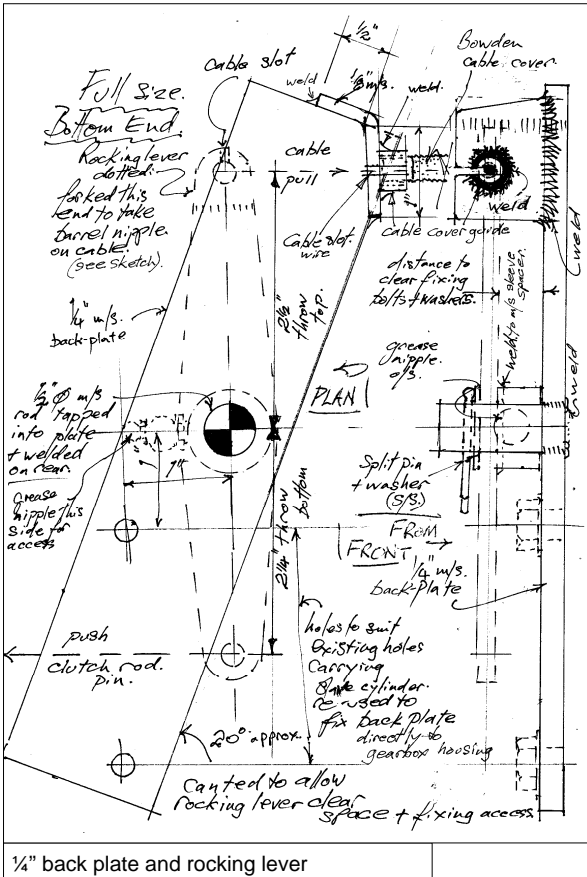 Full size.
Bottom End.
Rocking lever
dotted:
forked this
end to take
barrel nipple
on cable.
(see sketch).
cable slot
weld
1/2"
1/8" m/s.
weld.
Bowden
cable cover.
cable
pull
1"
weld
Cable slot.
wire
cable cover guide
weld
distance to
clear fixing
bolts + washers.
weld to m/s sleeve
spacer.
1/4" m/s.
back-plate
2 1/2"
throw
top.
grease
nipple.
o/s.
PLAN
weld
1/2" Ø m/s
rod tapped
into plate
+ welded
on rear.
1"
1"
grease
nipple this
side for
access
Split pin
+ washer
(S/S.)
FROM
FRONT
1/4" m/s.
back-plate
2 1/4" throw
bottom
push
clutch rod.
pin.
holes to suit
existing holes
carrying
slave cylinder.
re-used to
fix back plate
directly to
gearbox housing
20° approx.
Canted to allow
rocking lever clear
space + fixing access.
¼” back plate and rocking lever